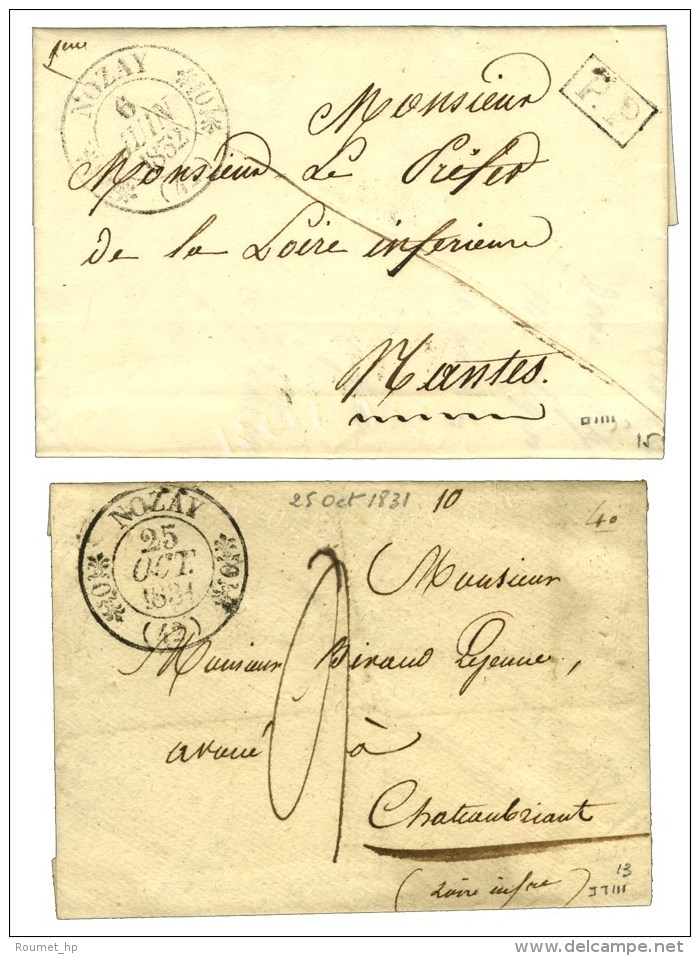 1ere
NOZAY
6
JUIN
1832
(42)
P.P.
Monsieur
Monsieur Le Préfet
de la Loire inferieure
Nantes.
15
25 Oct 1831
10
40
NOZAY
25
OCT.
1831
(42)
Monsieur
Monsieur Biraud Lejeune,
avoué à
Chateaubriant
(Loire infre)
13
Roumet_hp
delcampe.net